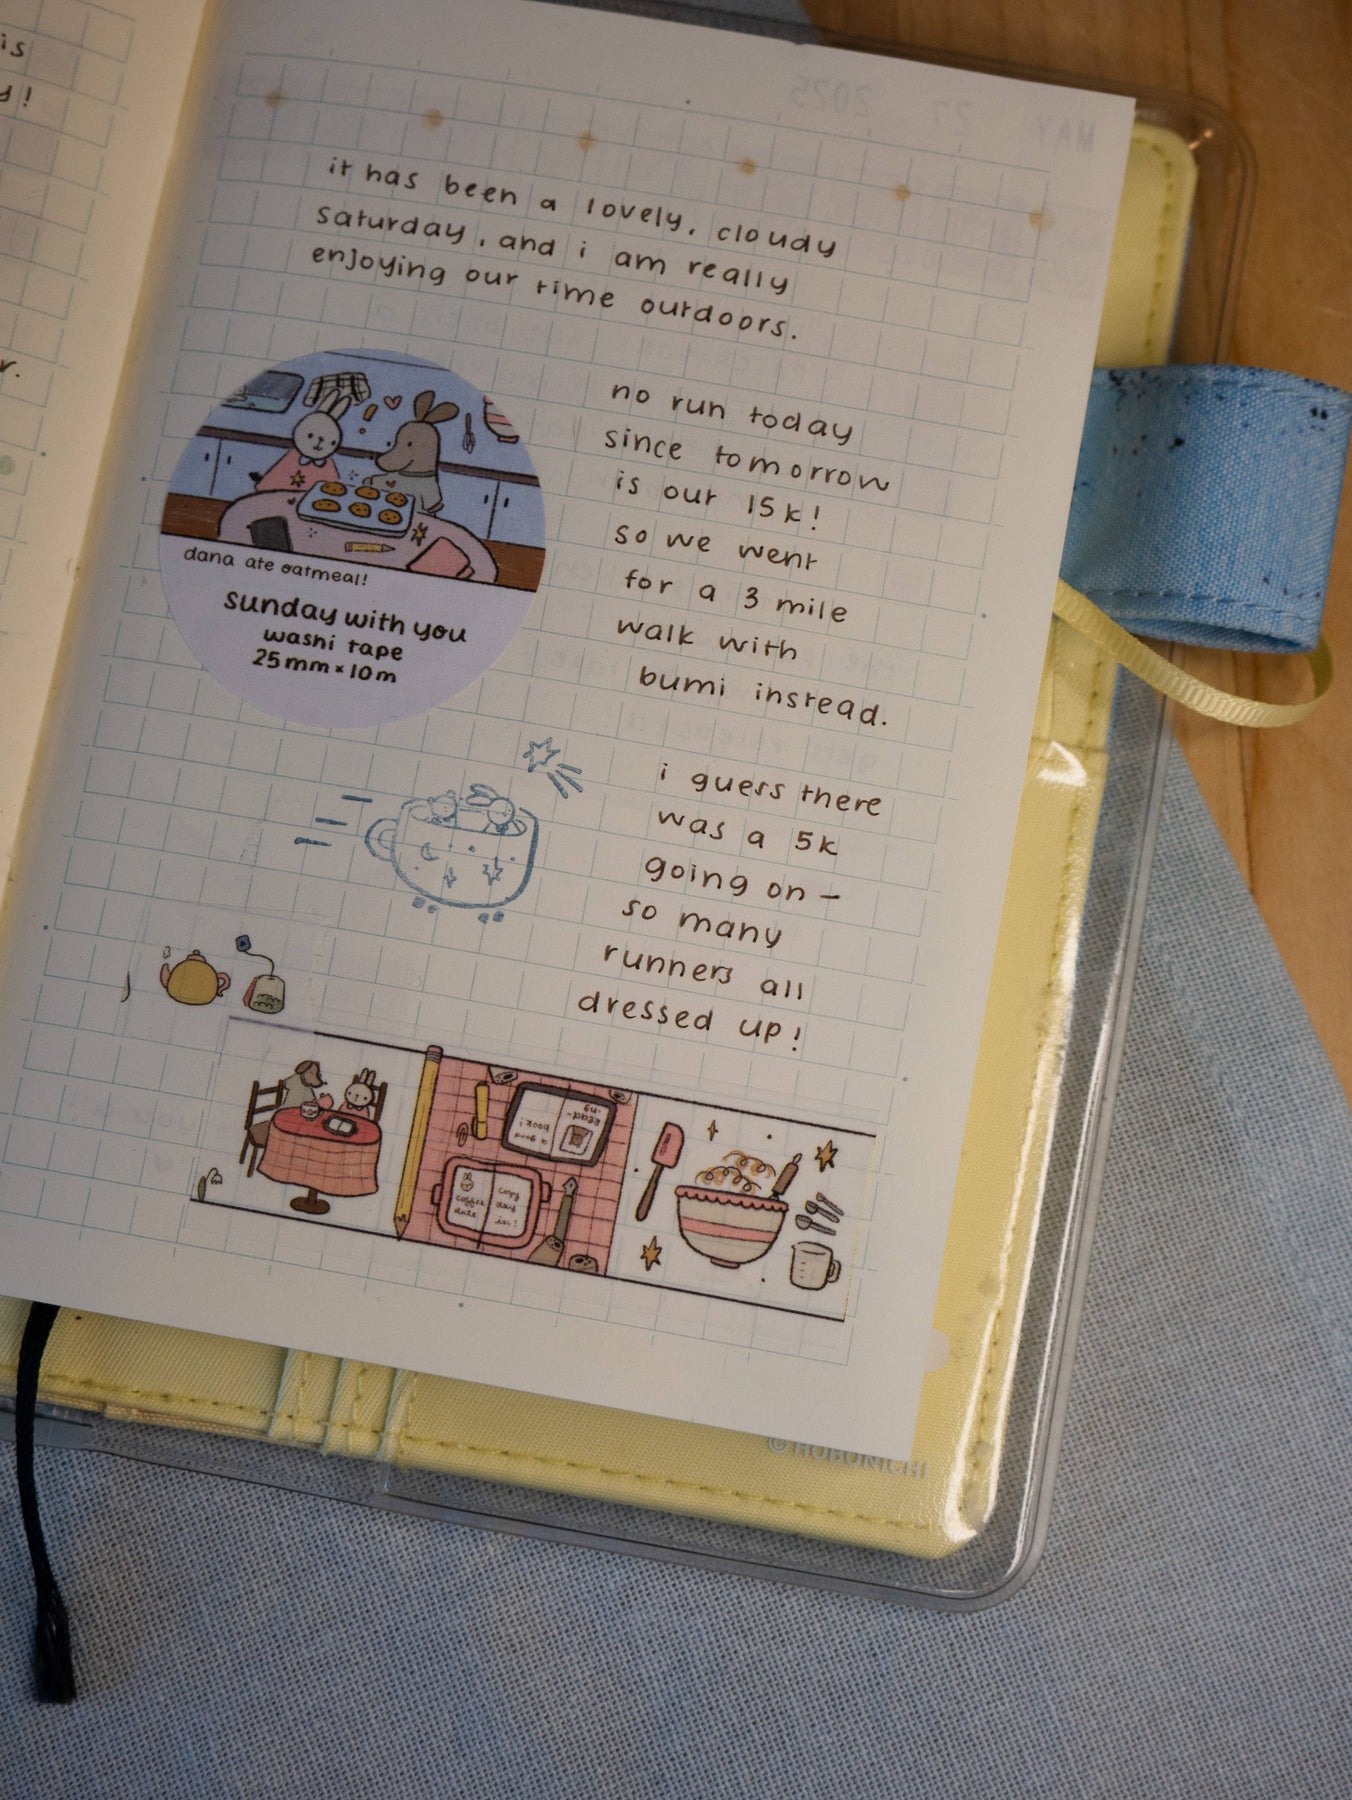 is
y!
r.
MAY 27 2025
it has been a lovely, cloudy
saturday, and i am really
enjoying our time outdoors.
no run today
since tomorrow
is our 15k!
so we went
for a 3 mile
walk with
bumi instead.
dana ate oatmeal!
sunday with you
washi tape
25mm × 10m
i guess there
was a 5k
going on –
so many
runners all
dressed up!
Read-
ing
a good
book!
coffee
date
cozy
day
in!
© HOBONICHI